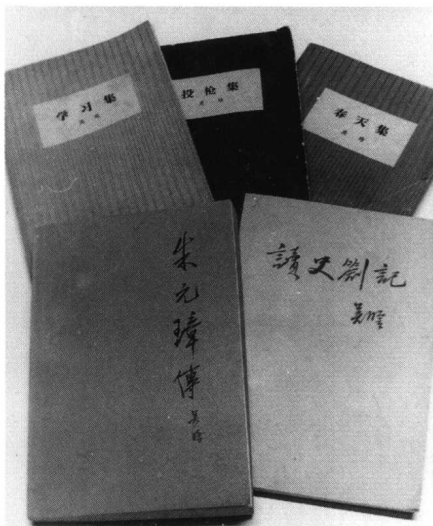 学习集
吴晗
投枪集
吴晗
春天集
吴晗
朱元璋傳
吴晗
讀史劄記
吴晗